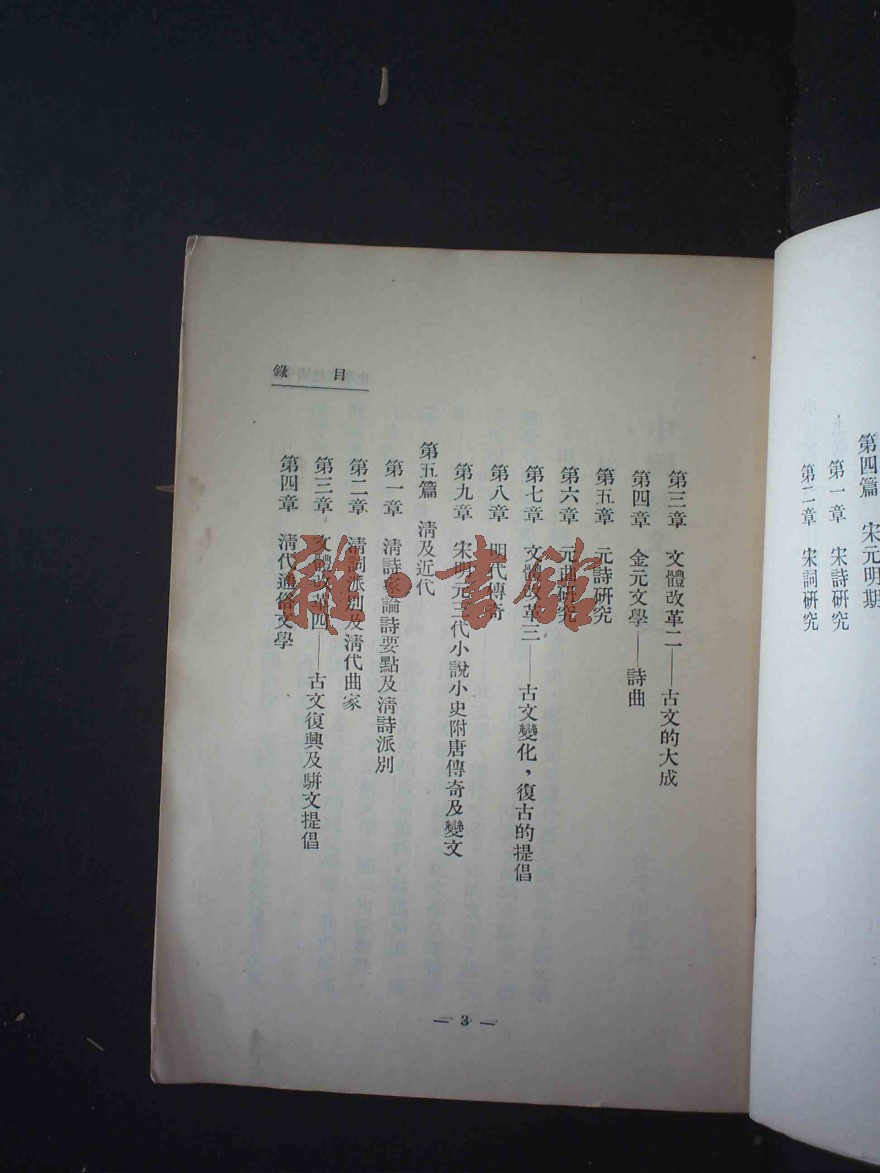 第四篇 宋元明期
第一章 宋詩研究
第二章 宋詞研究
目錄
第三章 文體改革二——古文的大成
第四章 金元文學——詩曲
第五章 元詩研究
第六章 元曲研究
第七章 文體改革三——古文變化，復古的提倡
第八章 明代傳奇
第九章 宋明元三代小說小史附唐傳奇及變文
第五篇 清及近代
第一章 清詩家論詩要點及清詩派別
第二章 清詞派別及清代曲家
第三章 文體改革四——古文復興及駢文提倡
第四章 清代通俗文學
— 3 —
雜·書館